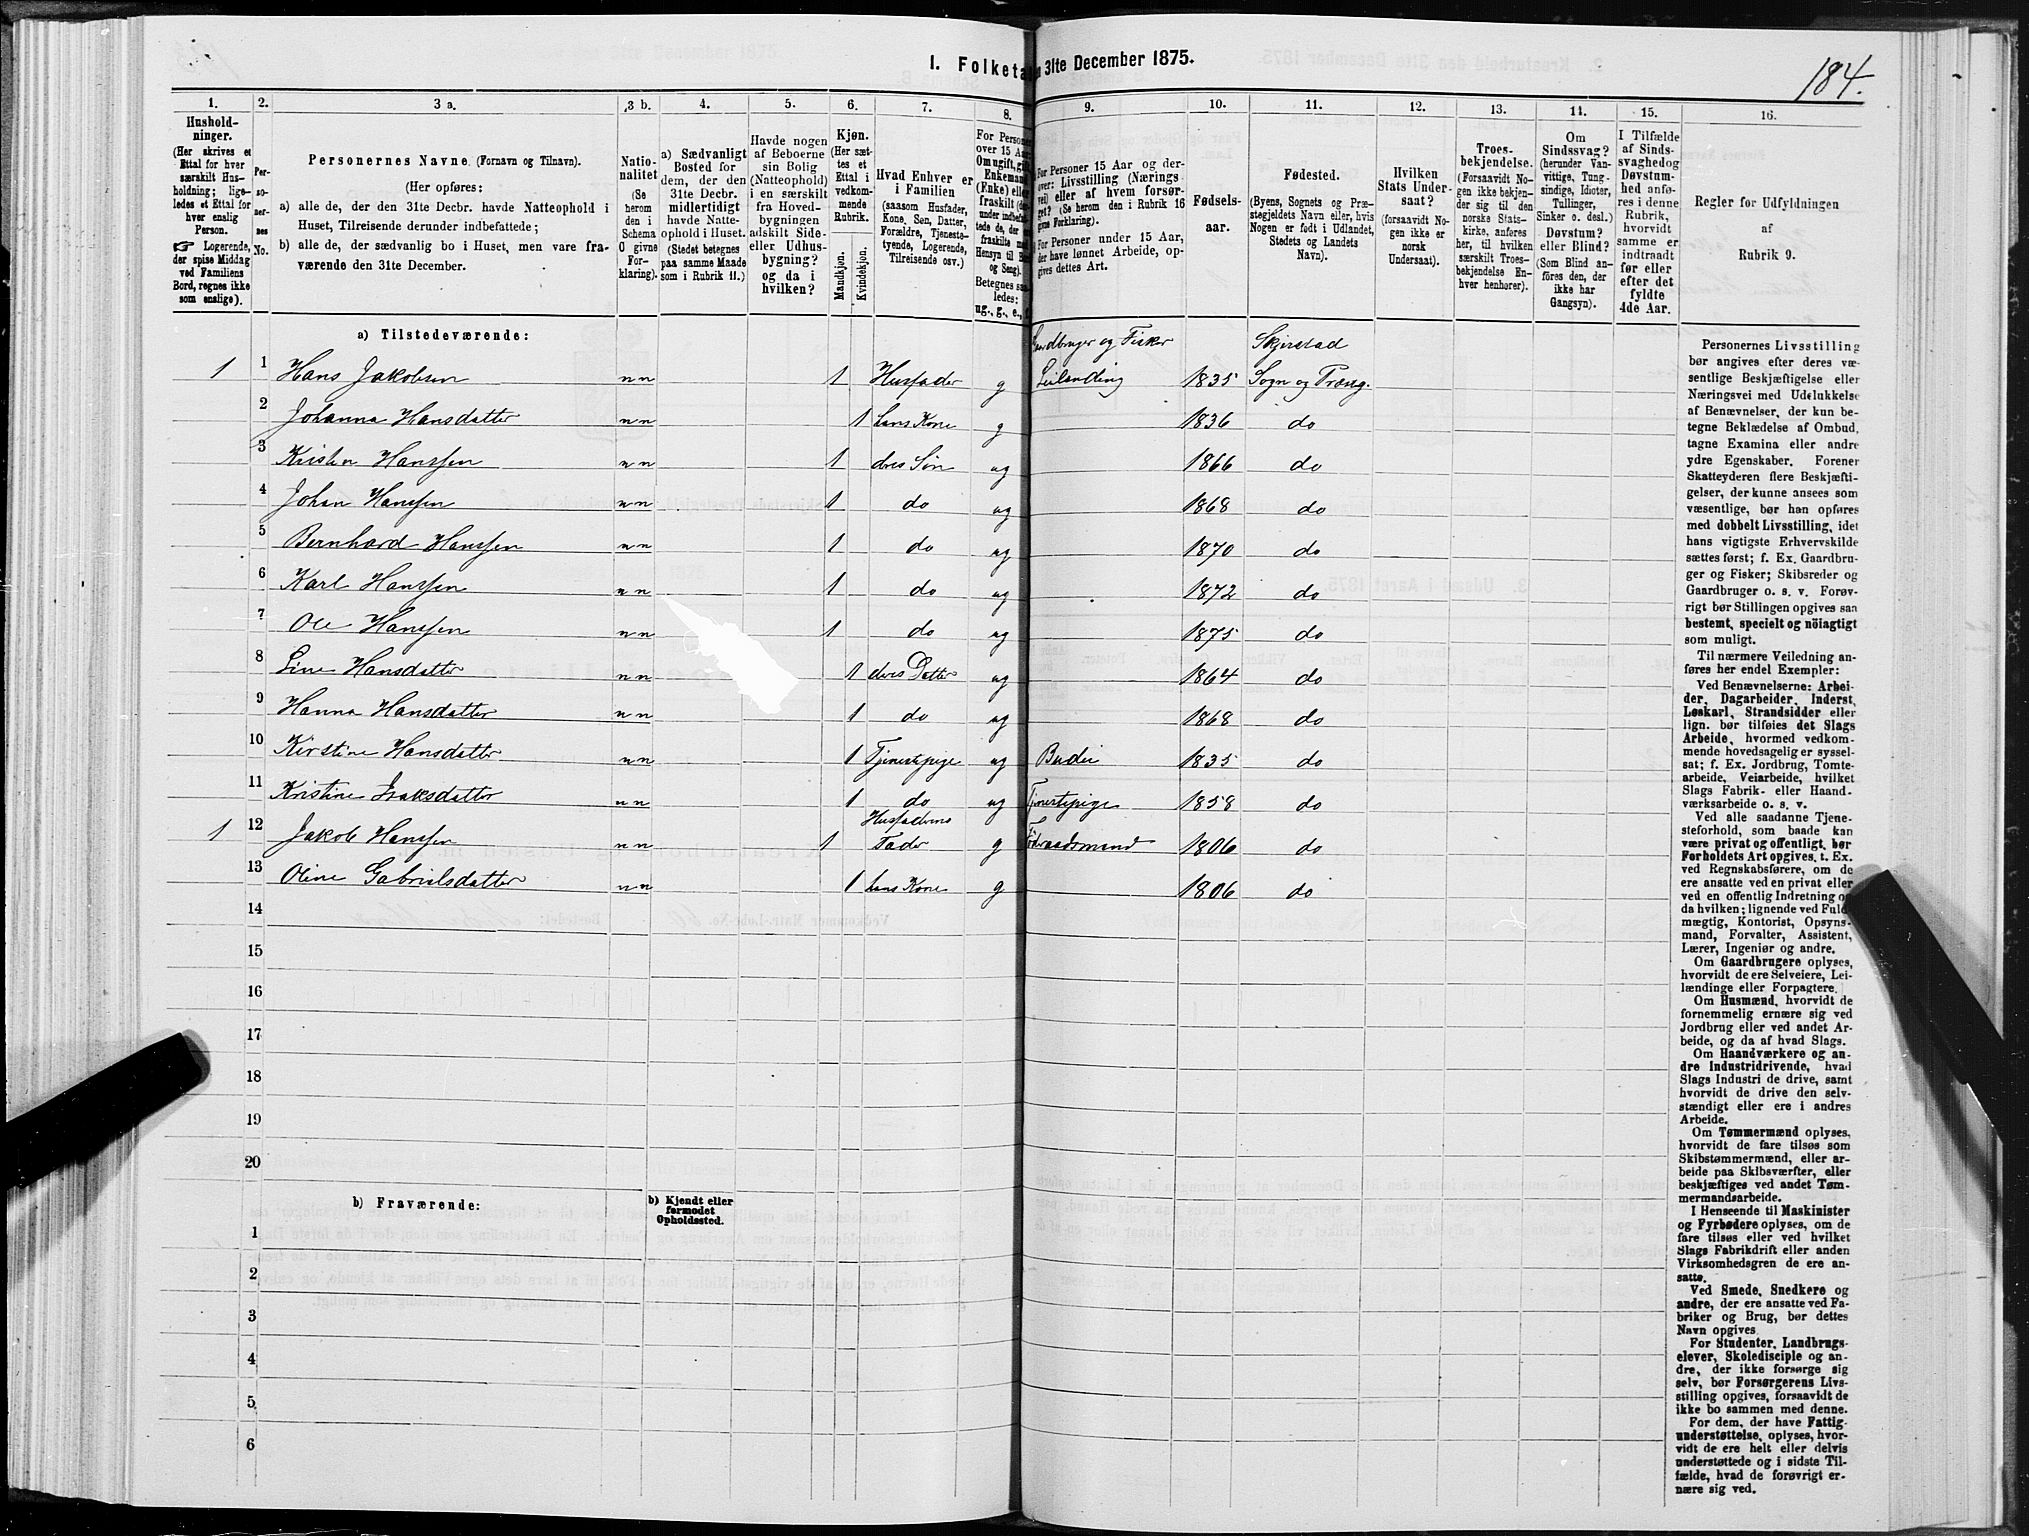 I. Folketa n 31te December 1875.
184.
1. 2. 3 a. 3 b. 4. 5. 6. 7. 8. 9. 10. 11. 12. 13. 14. 15. 16.
Hushold-
ninger.
(Her skrives et
Ettal for hver
særskilt Hus-
holdning; lige-
ledes et Ettal for
hver enslig
Person.
☞ Logerende,
der spise Middag
ved Familiens
Bord, regnes ikke
som enslige).
Per-
so-
ner-
nes
No.
Personernes Navne. (Fornavn og Tilnavn).
(Her opføres:
a) alle de, der den 31te Decbr. havde Natteophold i
Huset, Tilreisende derunder indbefattede;
b) alle de, der sædvanlig bo i Huset, men vare fra-
værende den 31te December.
Natio-
nalitet
(Se
herom
den i
Schema
O givne
For-
klaring).
a) Sædvanligt
Bosted for
dem, der den
31te Decbr.
midlertidigt
havde Natte-
ophold i Huset.
(Stedet betegnes
paa samme Maade
som i Rubrik 11.)
Havde nogen
af Beboerne
sin Bolig
(Natteophold)
i en særskilt
fra Hoved-
bygningen
adskilt Side-
eller Udhus-
bygning?
og da i
hvilken?
Kjøn.
(Her sæt-
tes et
Ettal i
vedkom-
mende
Rubrik.
Mandkjøn.
Kvindekjøn.
Hvad Enhver er
i Familien
(saasom Husfader,
Kone, Søn, Datter,
Forældre, Tjeneste-
tyende, Logerende,
Tilreisende osv.)
For Persone
over 15 Aar
Om ugift, gift
Enkemand
(Enke) eller
fraskilt
og Seng).
Betegnes saa
ledes:
ug., g., e., f.
For Personer 15 Aar og der-
over: Livsstilling (Nærings
vei) eller af hvem forsør-
get? (Se herom den i Rubrik 16
givne Forklaring).
For Personer under 15 Aar,
der have lønnet Arbeide, op-
gives dettes Art.
Fødsels-
aar.
Fødested.
(Byens, Sognets og Præ-
stegjeldets Navn eller, hvis
Nogen er født i Udlandet,
Stedets og Landets
Navn).
Hvilken
Stats Under-
saat?
(forsaavidt No-
gen ikke er
norsk
Undersaat).
Troes-
bekjendelse.
(Forsaavidt No-
gen ikke bekjen-
der sig til den
norske Stats-
kirke, anføres
her, til hvilken
særskilt Troes-
bekjendelse En-
hver henhører).
Om
Sindssvag?
(herunder Van-
vittige, Tung-
sindige, Idioter,
Tullinger,
Sinker o. desl.)
Døvstum?
eller Blind?
(Som Blind an-
føres den, der
ikke har
Gangsyn).
I Tilfælde
af Sinds-
svaghed og
Døvstum-
hed anfø-
res i denne
Rubrik,
hvorvidt
samme er
indtraadt
før eller
efter det
fyldte
4de Aar.
Regler for Udfyldningen
af
Rubrik 9.
a) Tilstedeværende:
Gaardbruger og Fisker Skjerstad
1 1 Hans Jakobsen n n 1 Husfader g Leilænding 1835 Sogn og Præstg.
2 Johanna Hansdatter n n 1 hans Kone g 1836 do
3 Kristen Hanssen n n 1 dres Søn ug 1866 do
4 Johan Hanssen n n 1 do ug 1868 do
5 Bernhard Hanssen n n 1 do ug 1870 do
6 Karl Hanssen n n 1 do ug 1872 do
7 Ole Hanssen n n 1 do ug 1875 do
8 Line Hansdatter n n 1 deres Datter ug 1864 do
9 Hanna Hansdatter n n 1 do ug 1868 do
10 Kirstine Hansdatter n n 1 Tjenestepige ug Budeie 1835 do
11 Kristine Isaksdatter n n 1 do ug Tjenestepige 1858 do
1 12 Jakob Hanssen n n 1 Husfaderens Fader g Føderaadsmand 1806 do
13 Oline Gabrielsdatter n n 1 hans Kone g 1806 do
14
15
16
17
18
19
20
b) Fraværende:
b) Kjendt eller
formodet
Opholdssted.
1
2
3
4
5
6
Personernes Livsstilling
bør angives efter deres væ-
sentlige Beskjæftigelse eller
Næringsvei med Udelukkelse
af Benævnelser, der kun be-
tegne Beklædelse af Ombud,
tagne Examina eller andre
ydre Egenskaber. Forener
Skatteyderen flere Beskjæfti-
gelser, der kunne ansees som
væsentlige, bør han opføres
med dobbelt Livsstilling, idet
hans vigtigste Erhvervskilde
sættes først; f. Ex. Gaardbru-
ger og Fisker; Skibsreder og
Gaardbruger o. s. v. Forøv-
rigt bør Stillingen opgives saa
bestemt, specielt og nöiagtigt
som muligt.
Til nærmere Veiledning an-
føres her endel Exempler:
Ved Benævnelserne: Arbei-
der, Dagarbeider, Inderst,
Løskarl, Strandsidder eller
lign. bør tilføies det Slags
Arbeide, hvormed vedkom-
mende hovedsagelig er syssel-
sat; f. Ex. Jordbrug, Tomte-
arbeide, Veiarbeide, hvilket
Slags Fabrik- eller Haand-
værksarbeide o. s. v.
Ved alle saadanne Tjene-
steforhold, som baade kan
være privat og offentligt, bør
Forholdets Art opgives, t. Ex.
ved Regnskabsførere, om de
ere ansatte ved en privat eller
ved en offentlig Indretning og
da hvilken; lignende ved Fuld-
mægtig, Kontorist, Opsyns-
mand, Forvalter, Assistent,
Lærer, Ingeniør og andre.
Om Gaardbrugere oplyses,
hvorvidt de ere Selveiere, Lei-
lændinge eller Forpagtere.
Om Husmænd, hvorvidt de
fornemmelig ernære sig ved
Jordbrug eller ved andet Ar-
beide, og da af hvad Slags.
Om Haandværkere og an-
dre Industridrivende, hvad
Slags Industri de drive, samt
hvorvidt de drive den selv-
stændigt eller ere i andres
Arbeide.
Om Tømmermænd oplyses,
hvorvidt de fare tilsøs som
Skibstømmermænd, eller ar-
beide paa Skibsværfter, eller
beskjæftiges ved andet Tøm-
mermandsarbeide.
I Henseende til Maskinister
og Fyrbødere oplyses, om de
fare tilsøs eller ved hvilket
Slags Fabrikdrift eller anden
Virksomhedsgren de ere an-
satte.
Ved Smede, Snedkere og
andre, der ere ansatte ved Fa-
briker og Brug, bør dettes
Navn opgives.
For Studenter, Landbrugs-
elever, Skoledisciple og an-
dre, der ikke forsørge sig
selv, bør Forsørgerens Livs-
stilling opgives, forsaavidt de
ikke bo sammen med denne.
For dem, der have Fattig-
understøttelse, oplyses, hvor-
vidt de ere helt eller delvis
understøttede og i sidste Til-
fælde, hvad de forøvrigt er-
nære sig ved.